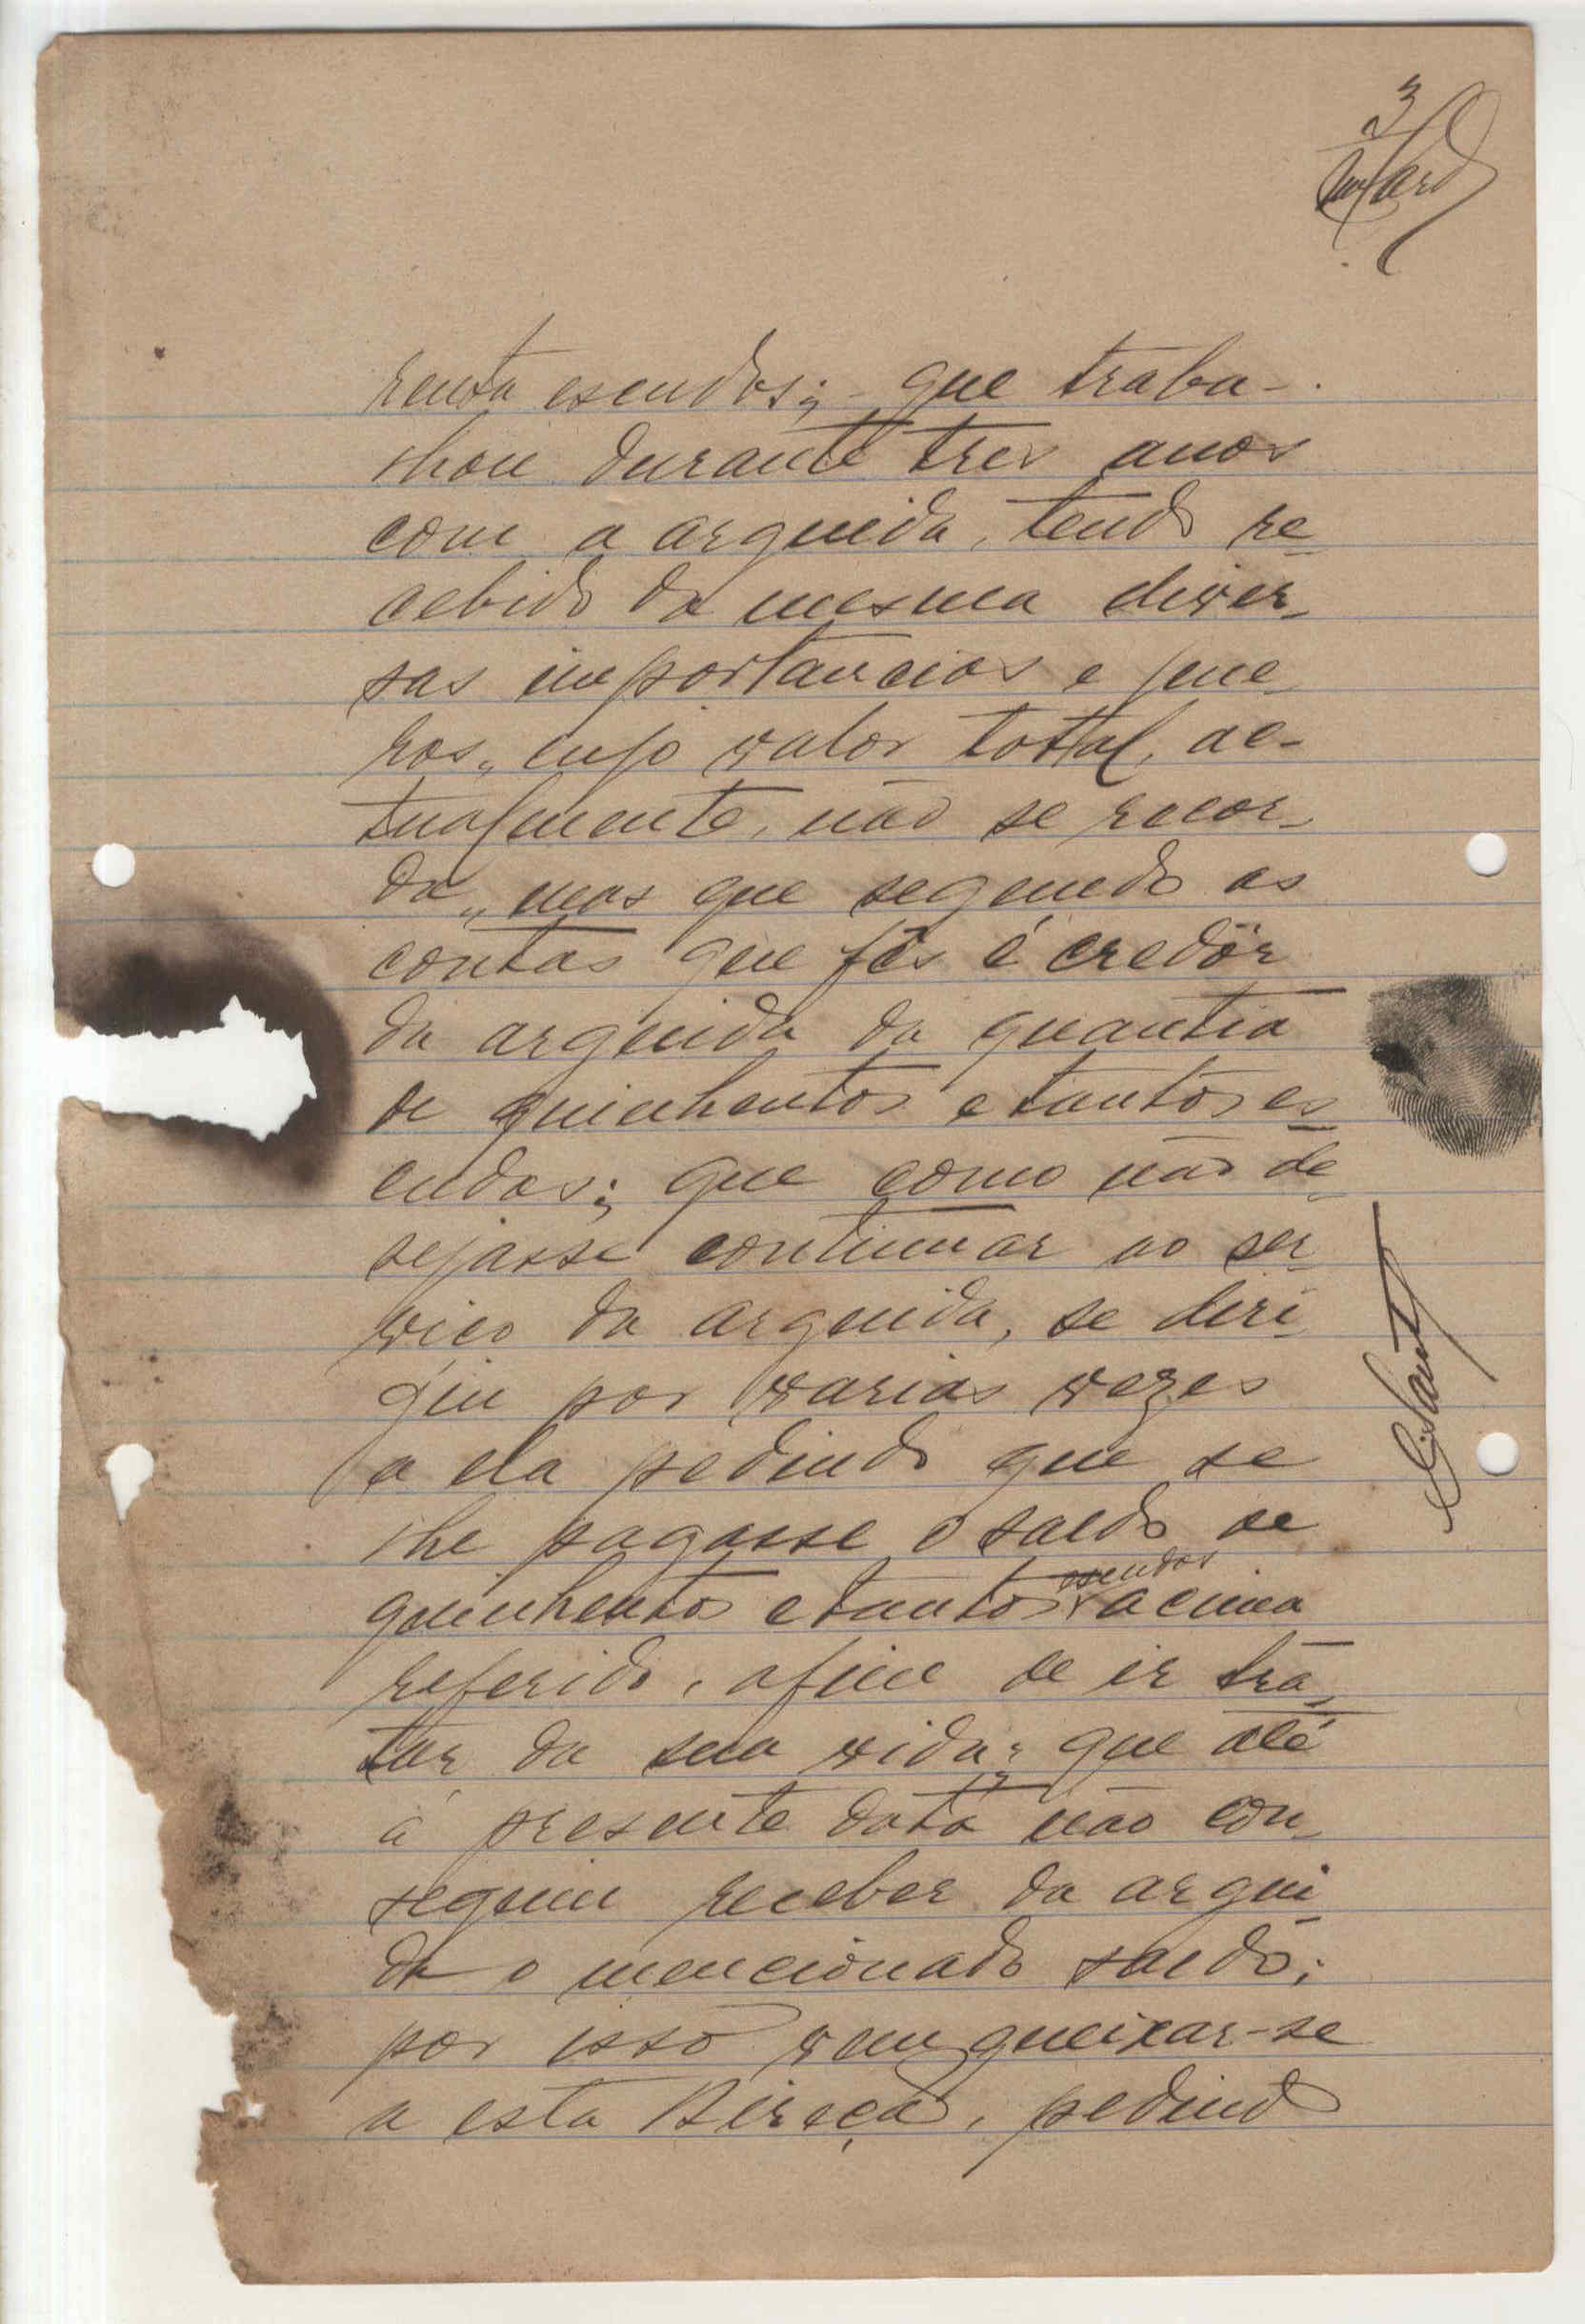 3
renta escudos; - que traba-
lhou durante tres anos
com a arguida, tendo re-
cebido da mesma diver-
sas importancias e gene-
ros, cujo valor total, ac-
tualmente, não se recor-
da, mas que segundo as
contas que fês é credôr
da arguida da quantia
de quinhentos e tantos es-
cudos; que como não de-
sejasse continuar ao ser-
viço da arguida, se diri-
giu por varias vezes
a ela pedindo que se
lhe pagasse o saldo de
quinhentos e tantos escudos acima
referido, afim de ir tra-
tar da sua vida; que até
á presente data não con-
seguiu receber da argui-
da o mencionado saldo;
por isso vem queixar-se
a esta Direcção, pedindo